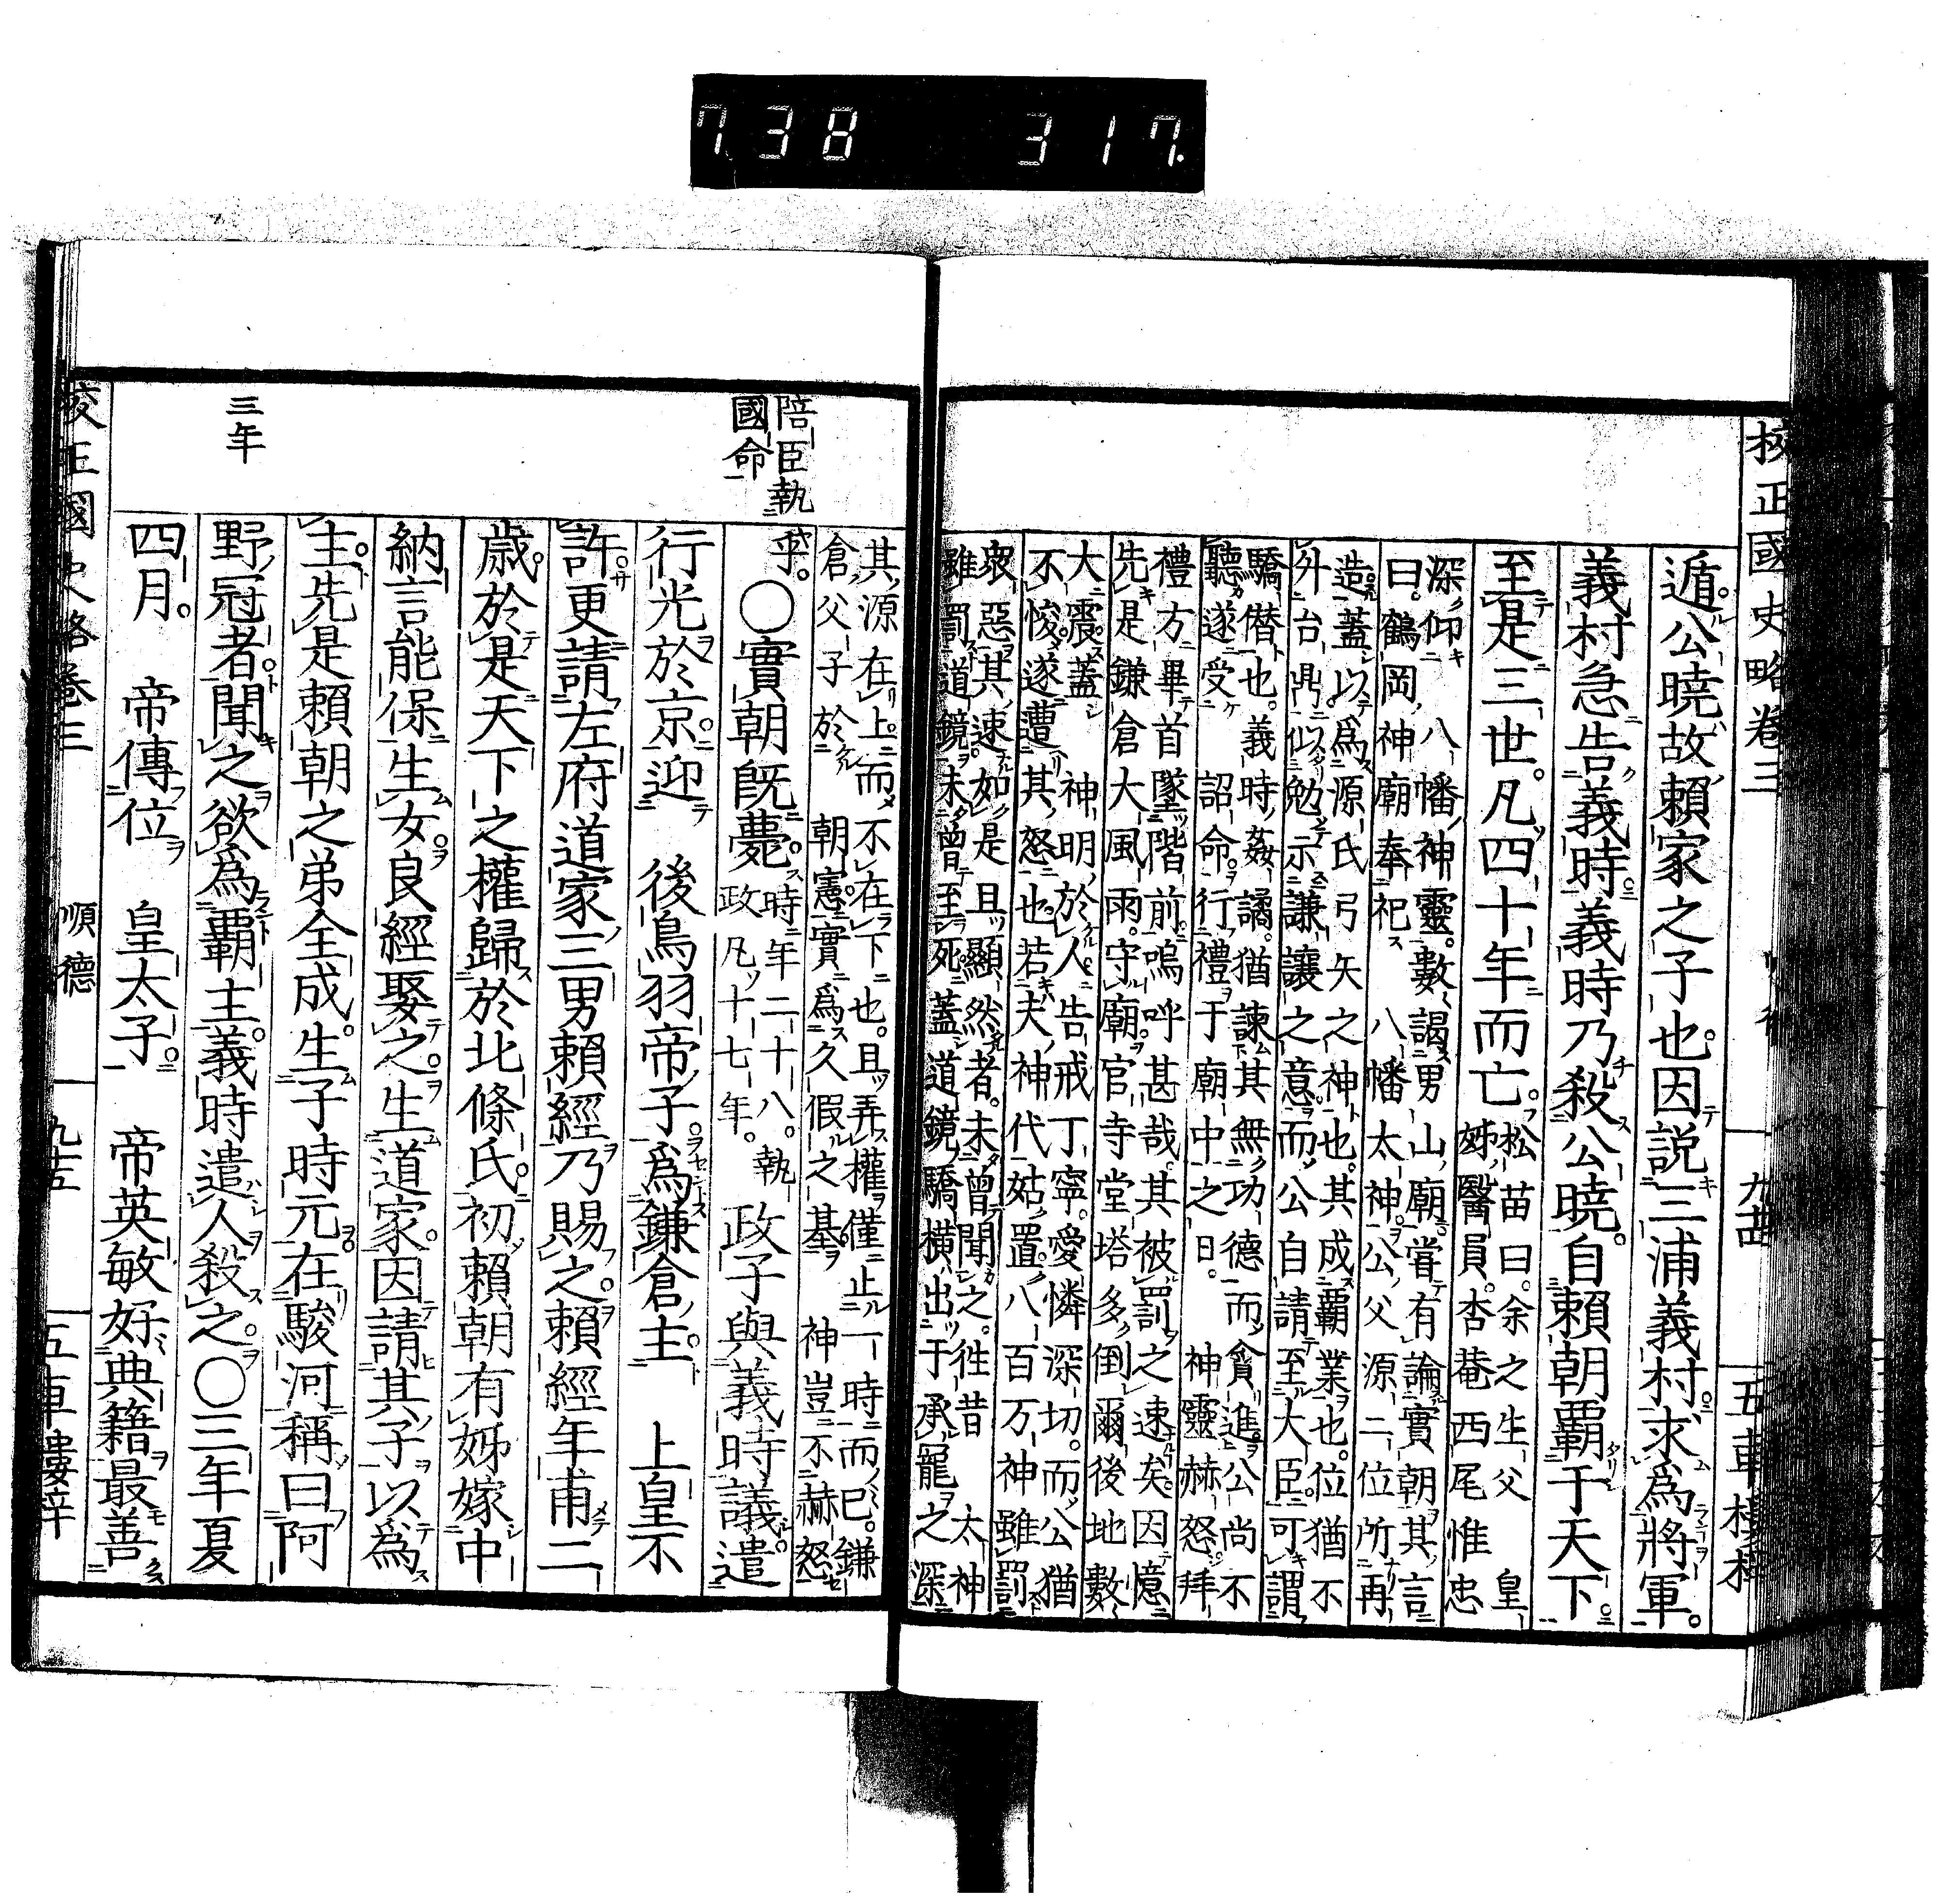 7.38 317.
校正國史略卷三
九十四
五車樓梓
遁公曉故賴家之子也因説三浦義村求爲將軍。
義村急告義時義時乃殺公曉。自賴朝覇于天下
至是三世。凡四十年而亡。松苗曰。余之生父 皇
姊醫員。杏菴西尾惟忠
深仰 八幡神靈。數謁男山廟嘗有論實朝其言
曰。鶴岡神廟奉祀 八幡太神公父源二位所再
造蓋以爲源氏弓矢之神也。其成覇業也。位猶不
外台鼎似勉示謙讓之意而公自請至大臣可謂
驕僭也。義時姦譎。猶諫其無功德而貪進公尚不
聽遂受 詔命。行禮于廟中之日。 神靈赫怒拜
禮方畢首墜階前嗚呼甚哉。其被罰之速矣。因憶
先是鎌倉大風雨。守廟官寺堂塔多倒爾後地數
大震蓋 神明於人告戒丁寧。愛憐深切。而公猶
不悛遂遭其怒也若夫神代姑置。八百万神雖罰
衆惡其速如是且顯然者。未曾聞之。往昔 太神
雖罰道鏡未曾至死蓋道鏡驕橫出于承寵之深
其源在上。而不在下也。且弄權僅止一時而已。鎌
倉父子於 朝憲實爲久假之基 神豈不赫怒
乎。○實朝既薨。時年二十八。執
政凡十七年。政子與義時議遣
陪臣執
國命
行光於京迎 後鳥羽帝子爲鎌倉主 上皇不
許更請左府道家三男賴經乃賜之。賴經年甫二
歲於是天下之權歸於北條氏。初賴朝有姊嫁中
納言能保生女。良經娶之。生道家。因請其子以爲
主。先是賴朝之弟全成生子時元在駿河稱曰阿
野冠者。聞之欲爲覇主。義時遣人殺之。○三年夏
三年
四月。 帝傳位 皇太子。 帝英敏好典籍最善
校正國史略卷三
順德
九十五
五車樓梓